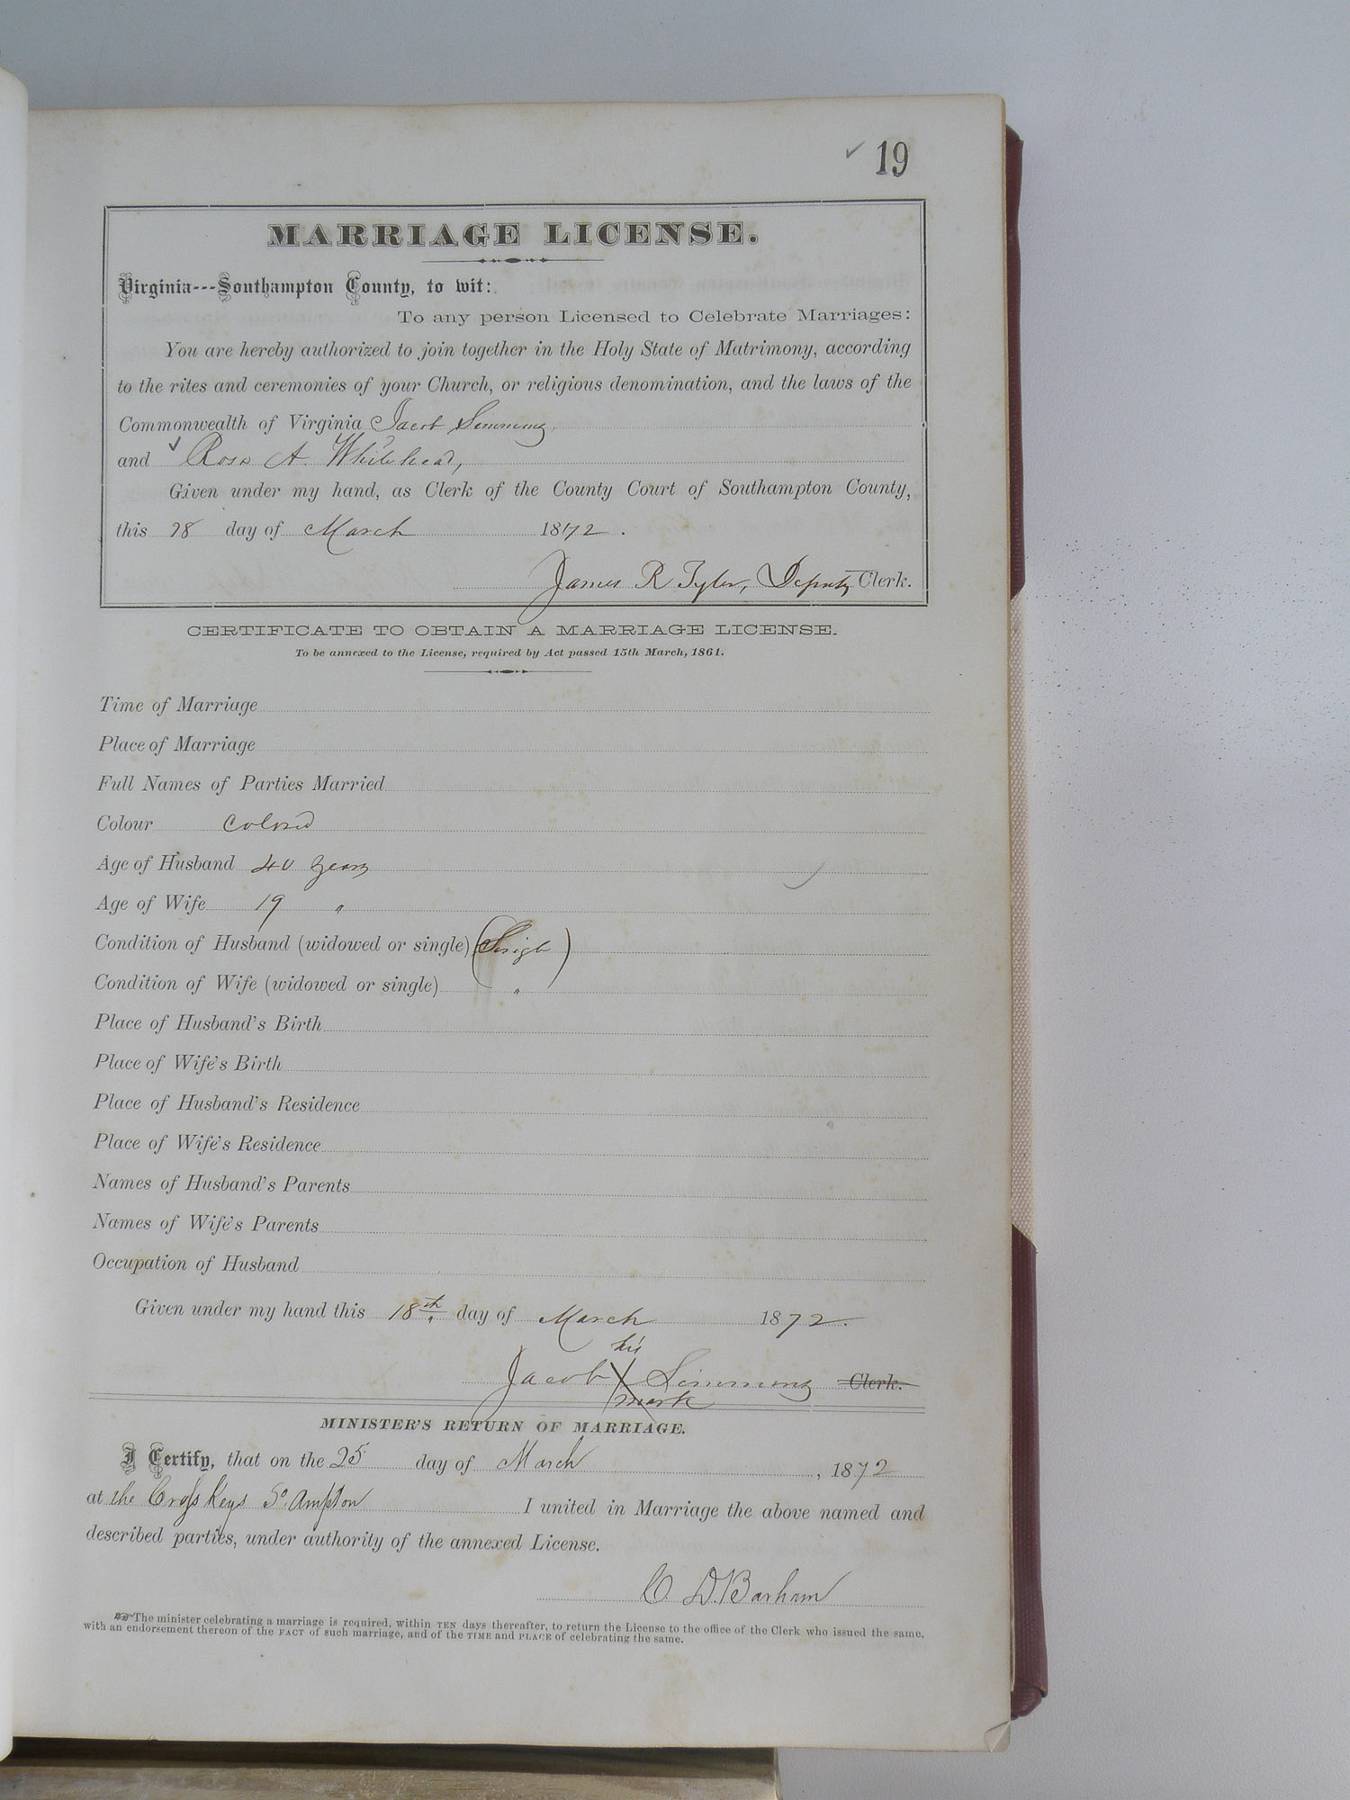 ✓ 19
MARRIAGE LICENSE.
Virginia---Southampton County, to wit:
To any person Licensed to Celebrate Marriages:
You are hereby authorized to join together in the Holy State of Matrimony, according
to the rites and ceremonies of your Church, or religious denomination, and the laws of the
Commonwealth of Virginia Jacob Simmons,
and ✓ Rosa A. Whitehead,
Given under my hand, as Clerk of the County Court of Southampton County,
this 18 day of March 1872.
James R Tyler, Deputy Clerk.
CERTIFICATE TO OBTAIN A MARRIAGE LICENSE.
To be annexed to the License, required by Act passed 15th March, 1861.
Time of Marriage
Place of Marriage
Full Names of Parties Married
Colour Colored
Age of Husband 40 years
Age of Wife 19 "
Condition of Husband (widowed or single) (Single)
Condition of Wife (widowed or single) "
Place of Husband's Birth
Place of Wife's Birth
Place of Husband's Residence
Place of Wife's Residence
Names of Husband's Parents
Names of Wife's Parents
Occupation of Husband
Given under my hand this 18th day of March 1872.
his
Jacob X Simmons Clerk.
mark
MINISTER'S RETURN OF MARRIAGE.
I Certify, that on the 25 day of March, 1872
at the Cross Keys So. Ampton I united in Marriage the above named and
described parties, under authority of the annexed License.
C. D. Barham
The minister celebrating a marriage is required, within TEN days thereafter, to return the License to the office of the Clerk who issued the same,
with an endorsement thereon of the FACT of such marriage, and of the TIME and PLACE of celebrating the same.